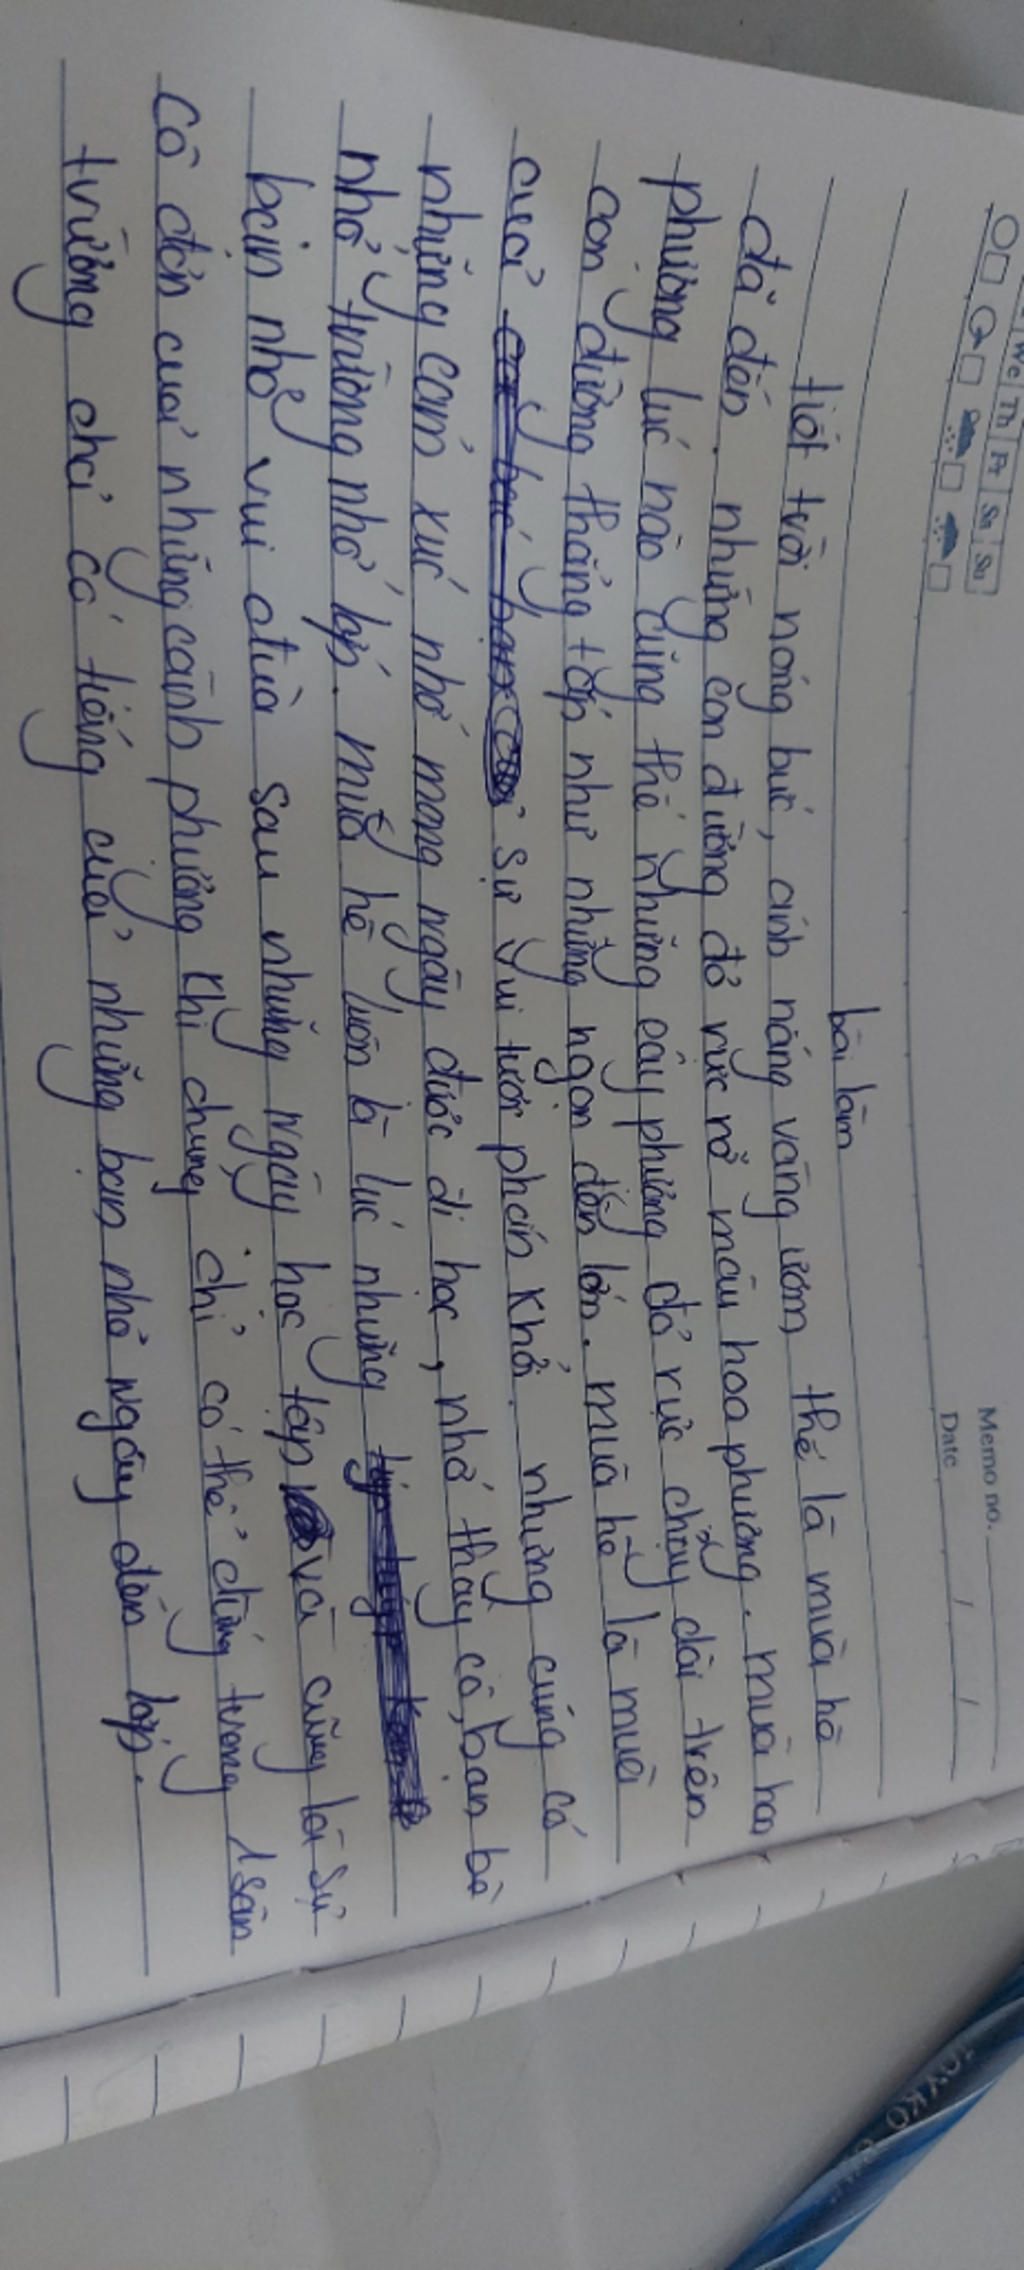 We Th Fr Sa Su
Memo no.
Date / /
bài làm
tiết trời nóng bức, ánh nắng vàng ươm thế là mùa hè
đã đến. những con đường đỏ rực rỡ màu hoa phượng. mùa hoa
phượng lúc nào cũng thế những cây phượng đỏ rực chạy dài trên
con đường thẳng tắp như những ngọn đến lớn. mùa hè là mùa
của sự vui tươi phấn khởi. nhưng cúng có
những cảm xúc nhớ mong ngày được đi học, nhớ thầy cô, bạn bè
nhớ trường nhớ lớp. mùa hè luôn là lúc những
bạn nhỏ vui đùa sau những ngày học tập và cũng là sự
cô đơn của những cành phượng khi chúng chỉ có thể đứng trong 1 sân
trường chỉ có tiếng của những bạn nhỏ ngáy đến lớp.